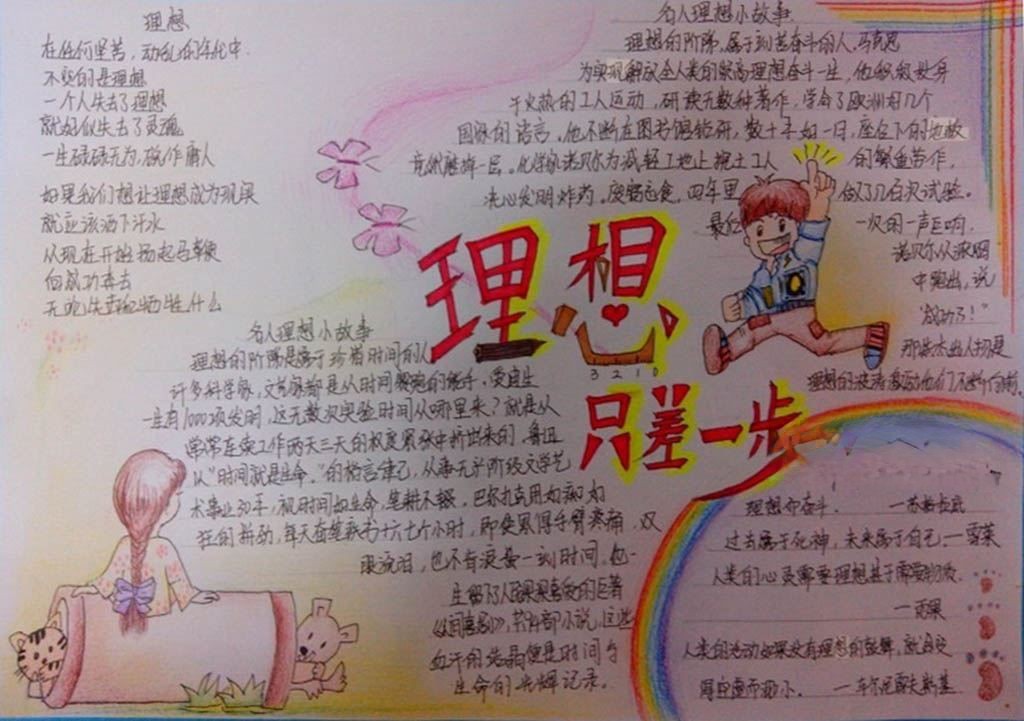 理想
在任何坚苦，动乱的年代中．
不变的是理想
一个人失去了理想
就好似失去了灵魂
一生碌碌无为，故作庸人
如果我们想让理想成为现实
就应该洒下汗水
从现在开始 扬起马鞭
向成功奔去
无论失
牺牲什么
名人理想小故事
理想的阶梯，属于刻苦奋斗的人．马克思
为实现解放全人类的崇高理想奋斗一生，他积极投身
于火热的工人运动，研读无数种著作，学会了欧洲好几个
国家的语言．他不断在图书馆钻研，数十年如一日，座位下的地板
竟然磨掉一层．化学家诺贝尔为减轻工地上挖土工人 的繁重劳作，
决心发明炸药，废寝忘食，四年里 做了几百次试验．
最后 一次的一声巨响．
诺贝尔从浓烟
中跑出，说
“成功了！”
那些杰出人物是
理想的
他们不断向前．
理想
只差一步
3 2 1 0
名人理想小故事
理想的阶梯是属于珍惜时间的人
许多科学家，文学家都是从时间
的能手．爱迪生
一生有1000项发明，这无数次实验时间从哪里来？就是从
常常连续工作两天三天的极度紧张中挤出来的．鲁迅
以“时间就是生命．”的格言律己，从事无产阶级文学艺
术事业30年，视时间如生命，笔耕不辍．巴尔扎克用如痴如
狂的拼劲，每天奋笔疾书十六七个小时，即使累得手臂疼痛，双
眼流泪，也不肯浪费一刻时间．他一
生留下了人民
喜爱的巨著
《人间喜剧》，
部小说，这些
血汗的结晶便是时间与
生命的光辉记录．
理想和奋斗． —苏格拉底
过去属于死神，未来属于自己．—雪莱
人类的心灵需要理想甚于需要物质．
—雨果
人类的活动如果没有理想的鼓舞，就会变
得空虚而渺小． —车尔尼雪夫斯基